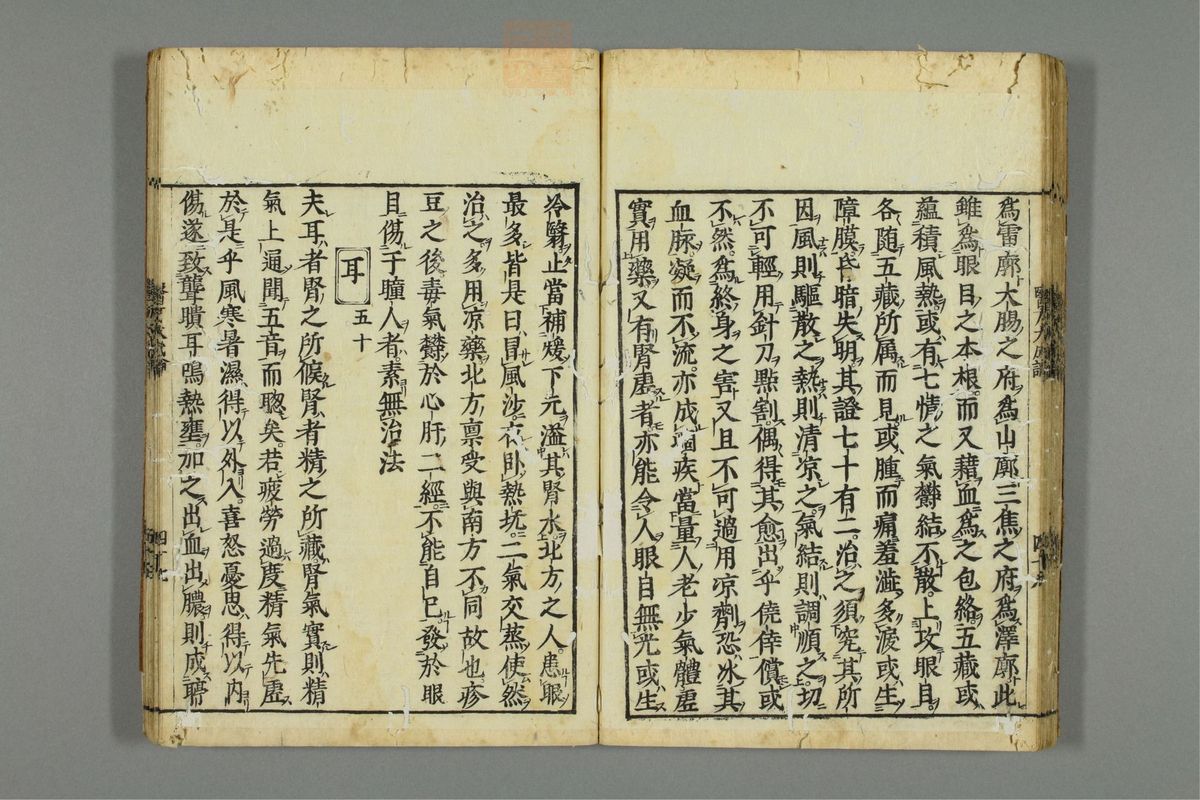 爲雷廓大腸之府爲山廓三焦之府爲澤廓此
雖爲眼目之本根而又藉血爲之包絡五藏或
蘊積風熱或有七情之氣欝結不散上攻眼目
各随五藏所属而見或腫而痛羞澁多淚或生
障膜昏暗失明其證七十有二治之須究其所
因風則驅散之熱則清凉之氣結則調順之切
不可輕用針刀㸃割偶得其愈出乎僥倖償或
不然爲終身之害又且不可過用凉劑恐氷其
血脉凝而不流亦成痼疾當量人老少氣體虚
實用藥又有腎虚者亦能令人眼目無光或生
冷翳止當補煖下元溢其腎水北方之人患眼
最多皆是日冒風沙夜卧熱炕二氣交蒸使然
治之多用凉藥北方禀受與南方不同故也疹
豆之後毒氣欝於心肝二經不能自已發於眼
目傷于瞳人者素無治法
耳 五十
夫耳者腎之所候腎者精之所藏腎氣實則精
氣上通聞五音而聦矣若疲勞過度精氣先虚
於是乎風寒暑濕得以外入喜怒憂思得以内
傷遂致聾聵耳鳴熱壅加之出血出膿則成聤